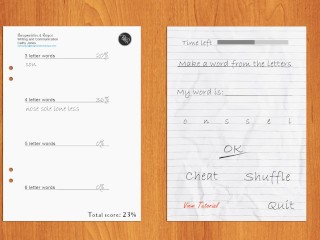 3 letter words 20%
con
4 letter words 36%
nose sole lone less
5 letter words 0%
6 letter words 0%
Total score: 23%
Time left
Make a word from the letters
My word is:
o n s s e l
OK
Cheat Shuffle
View Tutorial Quit